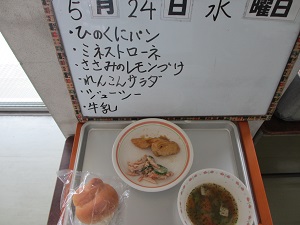 5月24日 水曜日
・ひのくにパン
・ミネストローネ
・ささみのレモンづけ
・れんこんサラダ
・ジューシー
・牛乳